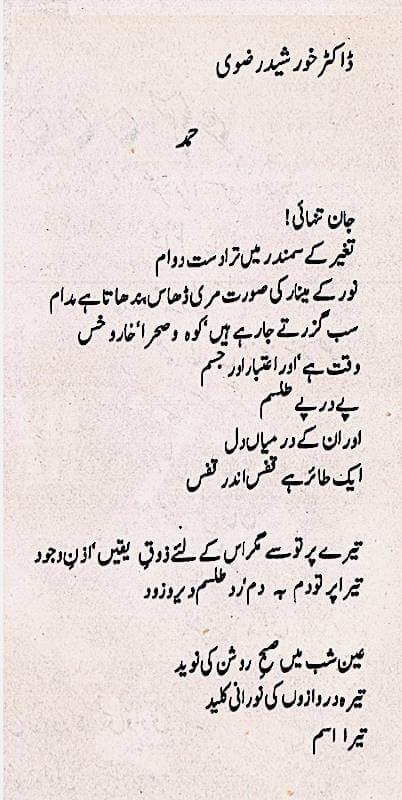 ڈاکٹر خورشید رضوی
حمد
جان تنہائی!
تغیر کے سمندر میں ترا دست دوام
نور کے مینار کی صورت مری ڈھاس بندھاتا ہے مدام
سب گزرتے جا رہے ہیں، کوہ و صحرا، خار و خس
وقت ہے، اور اعتبار اور جسم
پے در پے طلسم
اور ان کے درمیاں دل
ایک طائر ہے قفس اندر قفس
تیرے پرتو سے مگر اس کے لئے ذوقِ یقیں، اذنِ وجود
تیرا پرتو دم بہ دم، ردِ طلسم دیر و زود
عین شب میں صبحِ روشن کی نوید
تیرہ دروازوں کی نورانی کلید
تیرا اسم